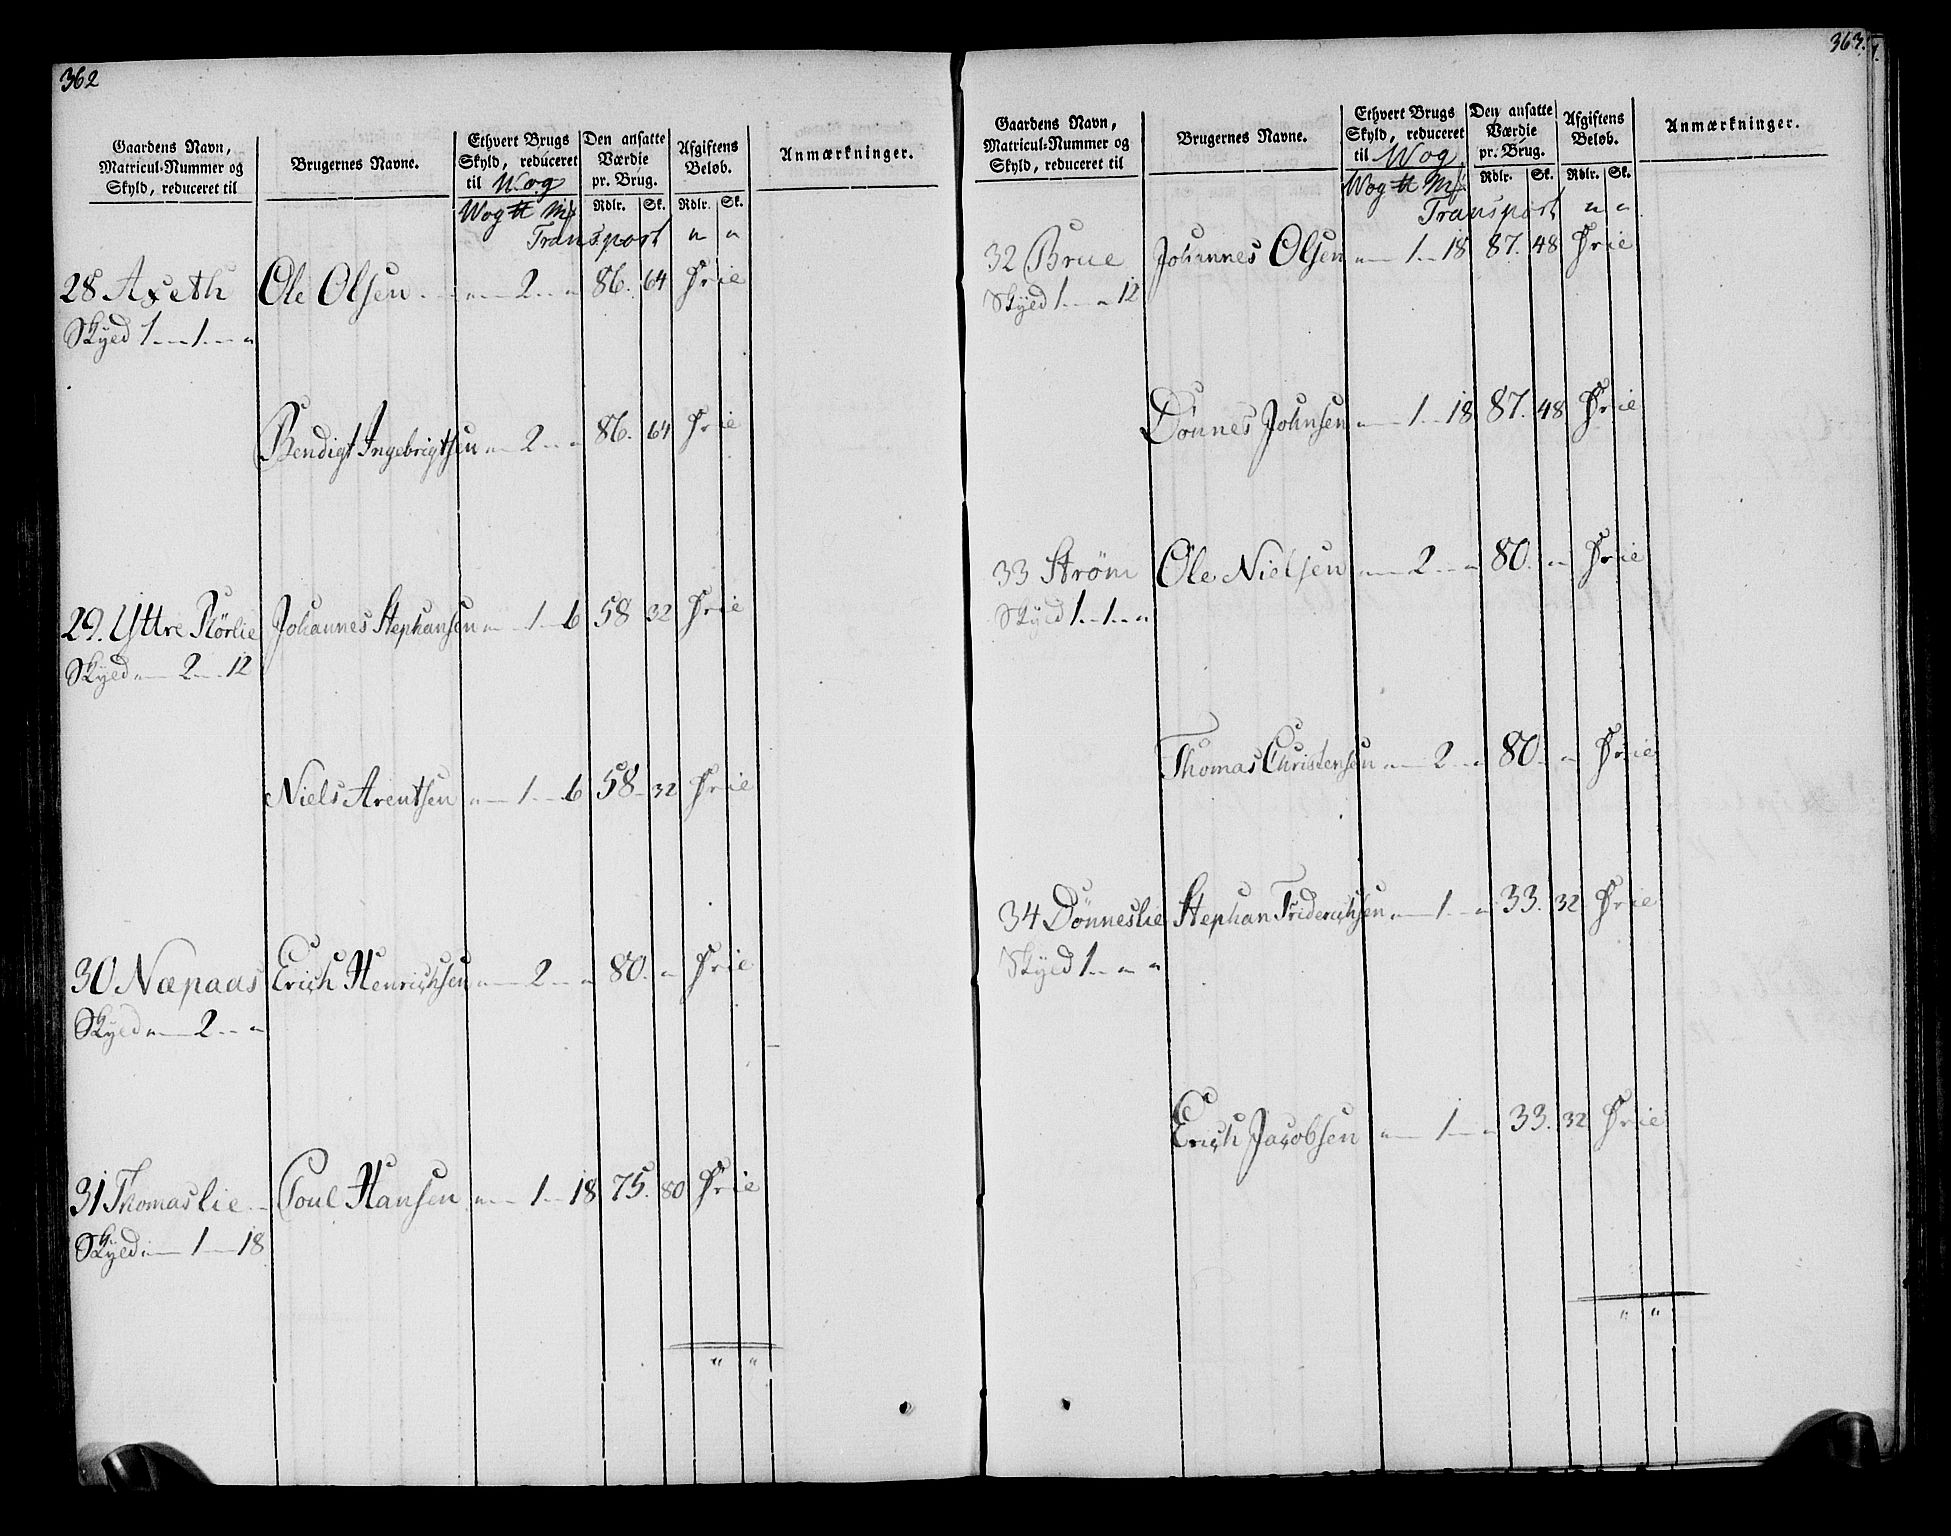 362
Gaardens Navn, Matricul-Nummer og Skyld, reduceret til | Brugernes Navne. | Ethvert Brugs Skyld, reduceret til Wog | Den ansatte Værdie pr. Brug. | Afgiftens Beløb. | Anmærkninger.
Wog ℔ Mk | Rdlr. | Sk. | Rdlr. | Sk.
Transport " "
28 Axeth Ole Olsen " 2 " 86. 64 Frie
Skyed 1 1 "
Bendigt Ingebrigtsen " 2 " 86. 64 Frie
29. Yttre Rörlie Johannes Stephansen " 1 6 58 32 Frie
Skyed " 2 12
Niels Arentsen " 1 6 58 32 Frie
30 Næpaas Erich Henrichsen " 2 " 80. " Frie
Skyed " 2 "
31 Thomaslie Poul Hansen " 1 18 75. 80 Frie
Skyed " 1 18
" "
363.
Gaardens Navn, Matricul-Nummer og Skyld, reduceret til | Brugernes Navne. | Ethvert Brugs Skyld, reduceret til Wog | Den ansatte Værdie pr. Brug. | Afgiftens Beløb. | Anmærkninger.
Wog ℔ Mk | Rdlr. | Sk. | Rdlr. | Sk.
Transport " "
32 Brue Johannes Olsen " 1 18 87. 48 Frie
Skyed 1 " 12
Dönnes Johnsen " 1 18 87. 48 Frie
33 Ström Ole Nielsen " 2 " 80. " Frie
Skyed 1 1 "
Thomas Christensen " 2 " 80. " Frie
34 Dönneslie Stephan Friderichsen " 1 " 33. 32 Frie
Skyed 1 " "
Erich Jacobsen " 1 " 33. 32 Frie
" "